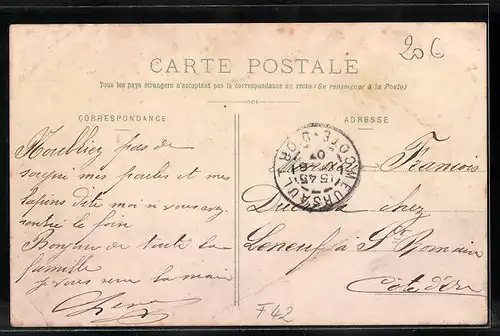 206
CARTE POSTALE
Tous les pays étrangers n'acceptent pas la correspondance au recto (Se renseigner à la Poste)
CORRESPONDANCE
N'oubliez pas de
soigni mes poules et mes
lapins dite moi si vous avez
rentré le foin
Bonjour de toute la
famille
je vous serre la main
ADRESSE
MEURSAULT
CÔTE-D'OR
15 45
07
François
chez
Leneuf à St Romain
Côte d'Or
F42